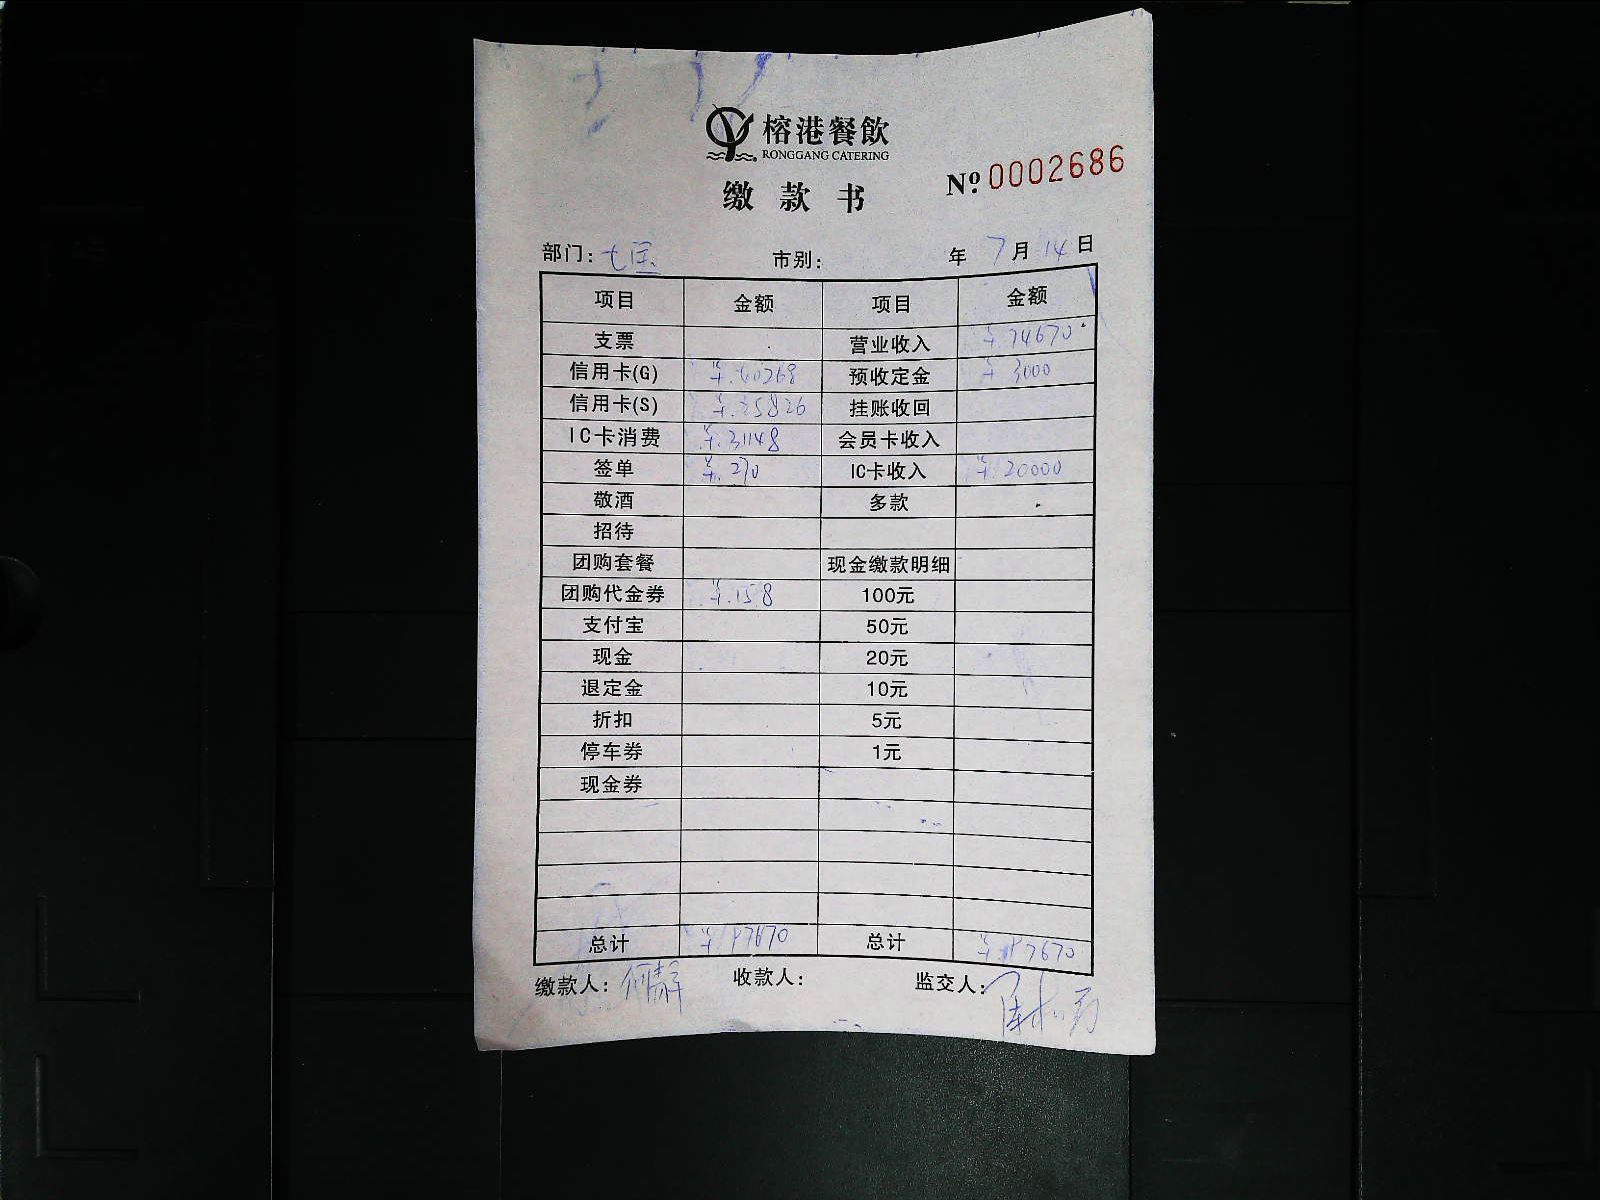 榕港餐飲
RONGGANG CATERING
缴款书
Nº 0002686
部门: 市别: 年 7月 14日
项目 金额 项目 金额
支票 营业收入 ¥.74670
信用卡(G) ¥.40268 预收定金 ¥ 3000
信用卡(S) ¥.25826 挂账收回
IC卡消费 ¥.31148 会员卡收入
签单 ¥.270 IC卡收入 ¥ 20000
敬酒 多款
招待
团购套餐 现金缴款明细
团购代金券 ¥.158 100元
支付宝 50元
现金 20元
退定金 10元
折扣 5元
停车券 1元
现金券
总计 ¥ 97670 总计 ¥ 97670
缴款人: 何静 收款人: 监交人: